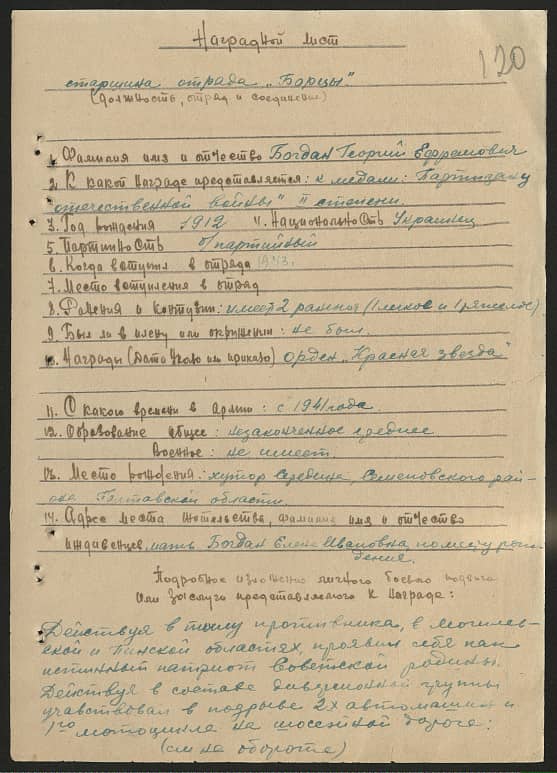 Наградной лист
120
старшина отряда "Борцы".
(должность, отряд и соединение)
1. Фамилия имя и отчество Богдан Георгий Ефремович
2. К какой награде представляется: к медали: "Партизану
отечественной войны" II степени.
3. Год рождения 1912 4. Национальность Украинец
5. Партийность б/партийный
6. Когда вступил в отряд 1943.
7. Место вступления в отряд
8. Ранения и контузии: имеет 2 ранения (1 легкое и 1 тяжелое).
9. Был ли в плену или окружении: не был.
10. Награды (Дата Указа или приказа) орден "Красная звезда"
11. С какого времени в Армии: с 1941 года.
12. Образование общее: незаконченное среднее
Военное: не имеет
13. Место рождения: хутор Середина, Семеновского рай-
она Полтавской области.
14. Адрес места жительства, фамилия имя и отчество
иждивенцев мать Богдан Елена Ивановна, по месту рож-
дения.
Подробное изложение личного боевого подвига
или заслуга представляемого к награде:
Действуя в тылу противника, в Могилев-
ской и Пинской областях, проявил себя как
истинный патриот Советской родины.
Действуя в составе диверсионной группы
учавствовал в подрыве 2х автомашин и
1го мотоцикла на шоссейной дороге:
(см на обороте)